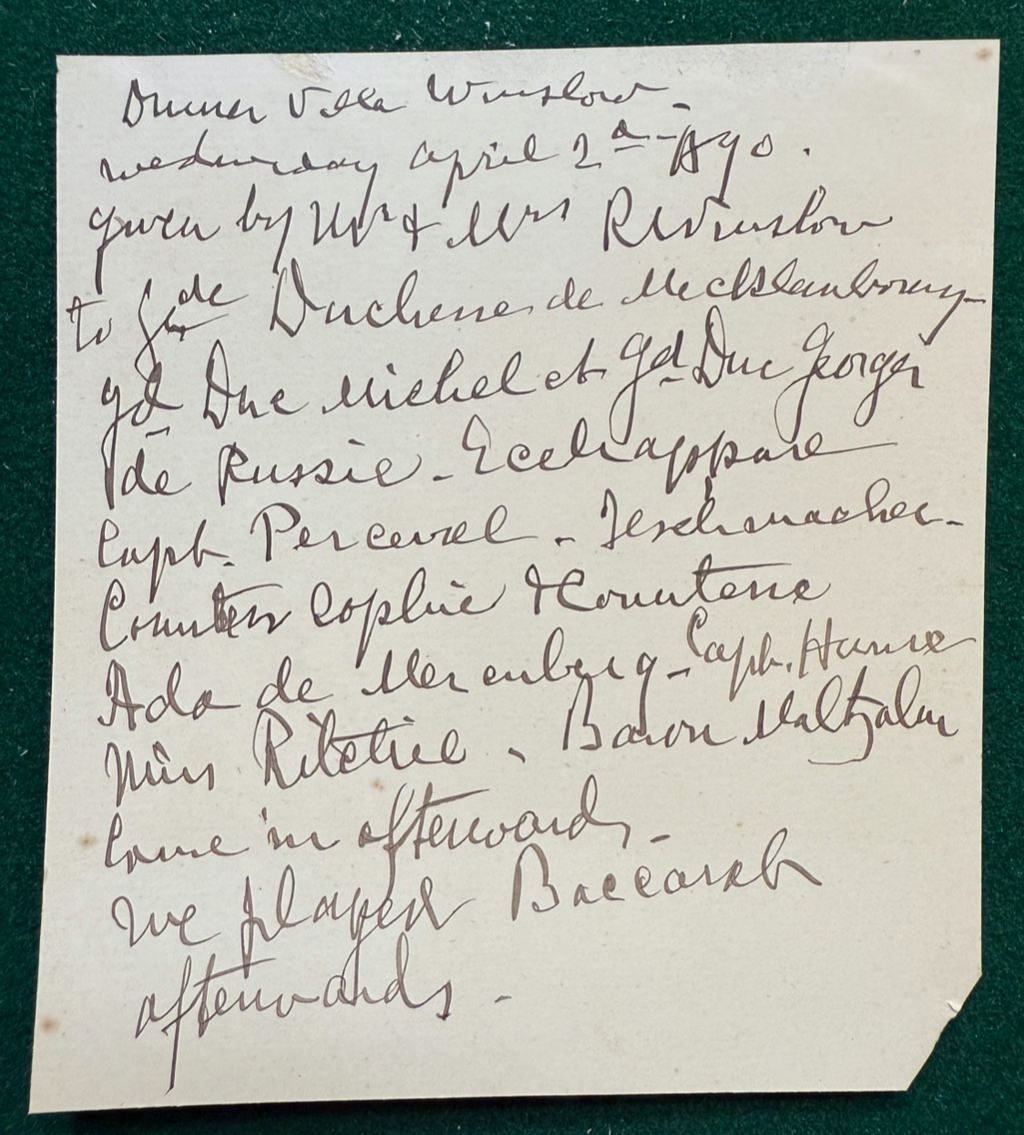 Dinner Villa Winslow -
wednesday april 2d - 90.
given by Mr & Mrs R Winslow
to Gde Duchesse de Mecklenbourg -
gd Duc Michel et Gd Duc Georges
de Russie -
Capt. Perceval - Teschmacher -
Countess Sophie & Countesse
Ada de Merenberg - Capt. Hume
Miss Ritchie - Baron Maltzahn
came in afterwards -
we played Baccarat
afterwards -